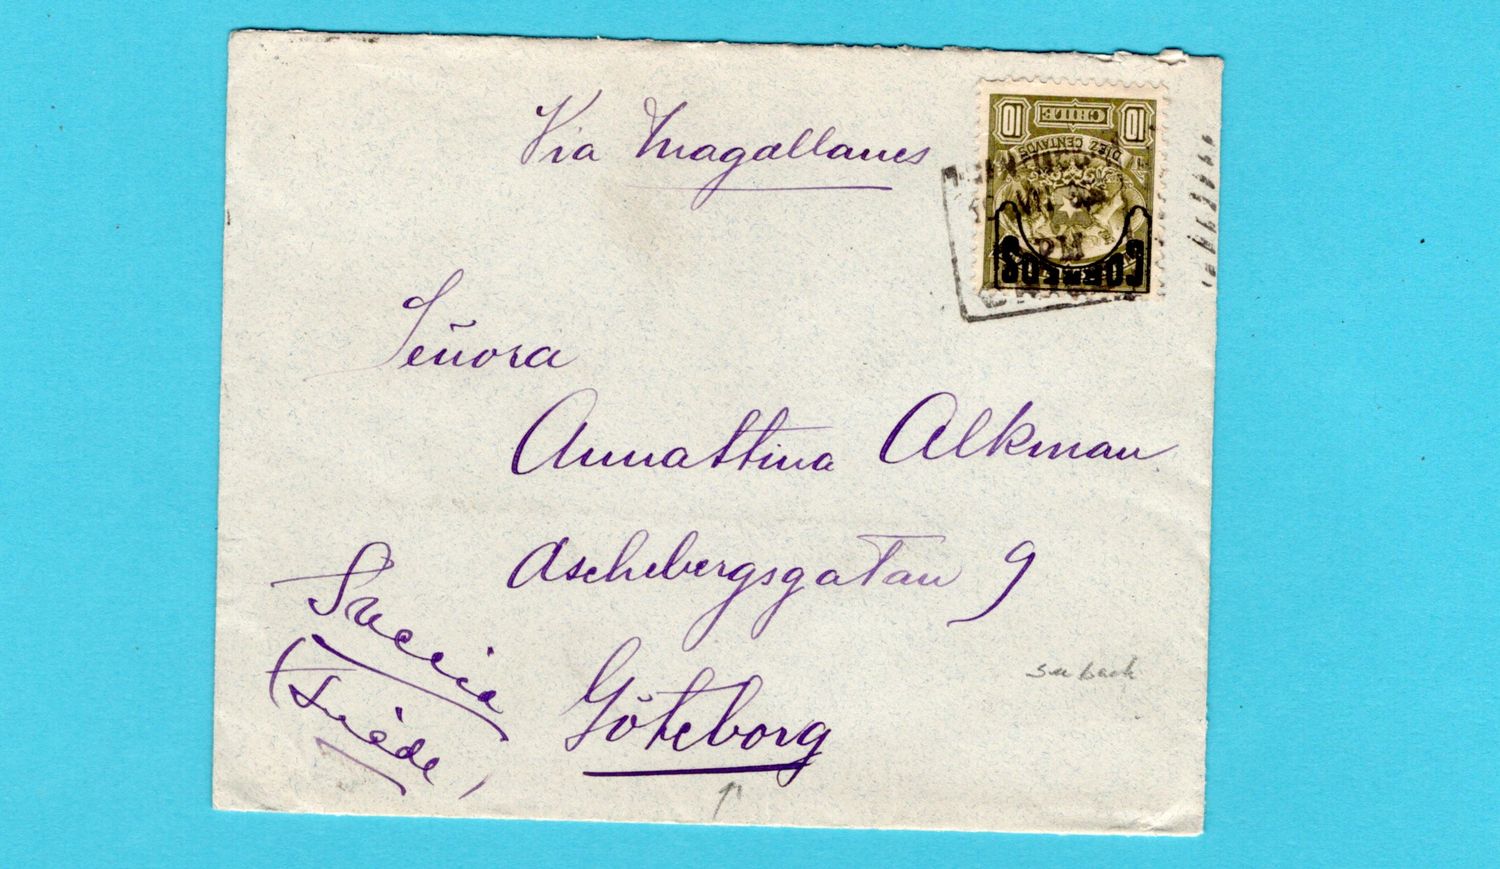 Via Magallanes
CHILE
10 10
DIEZ CENTAVOS
CORREOS
10 VII
PM
CHILE
Señora
Annattina Alkman
Aschebergsgatan 9
Göteborg
Suecia
(Suède)
see back